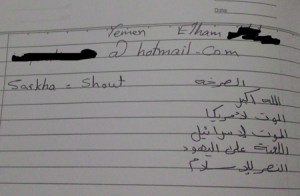 Yemen Elham
@ hotmail.com
Sarkha = Shout الصرخة
الله اكبر
الموت لأمريكا
الموت لاسرائيل
اللعنة على اليهود
النصر للإسلام